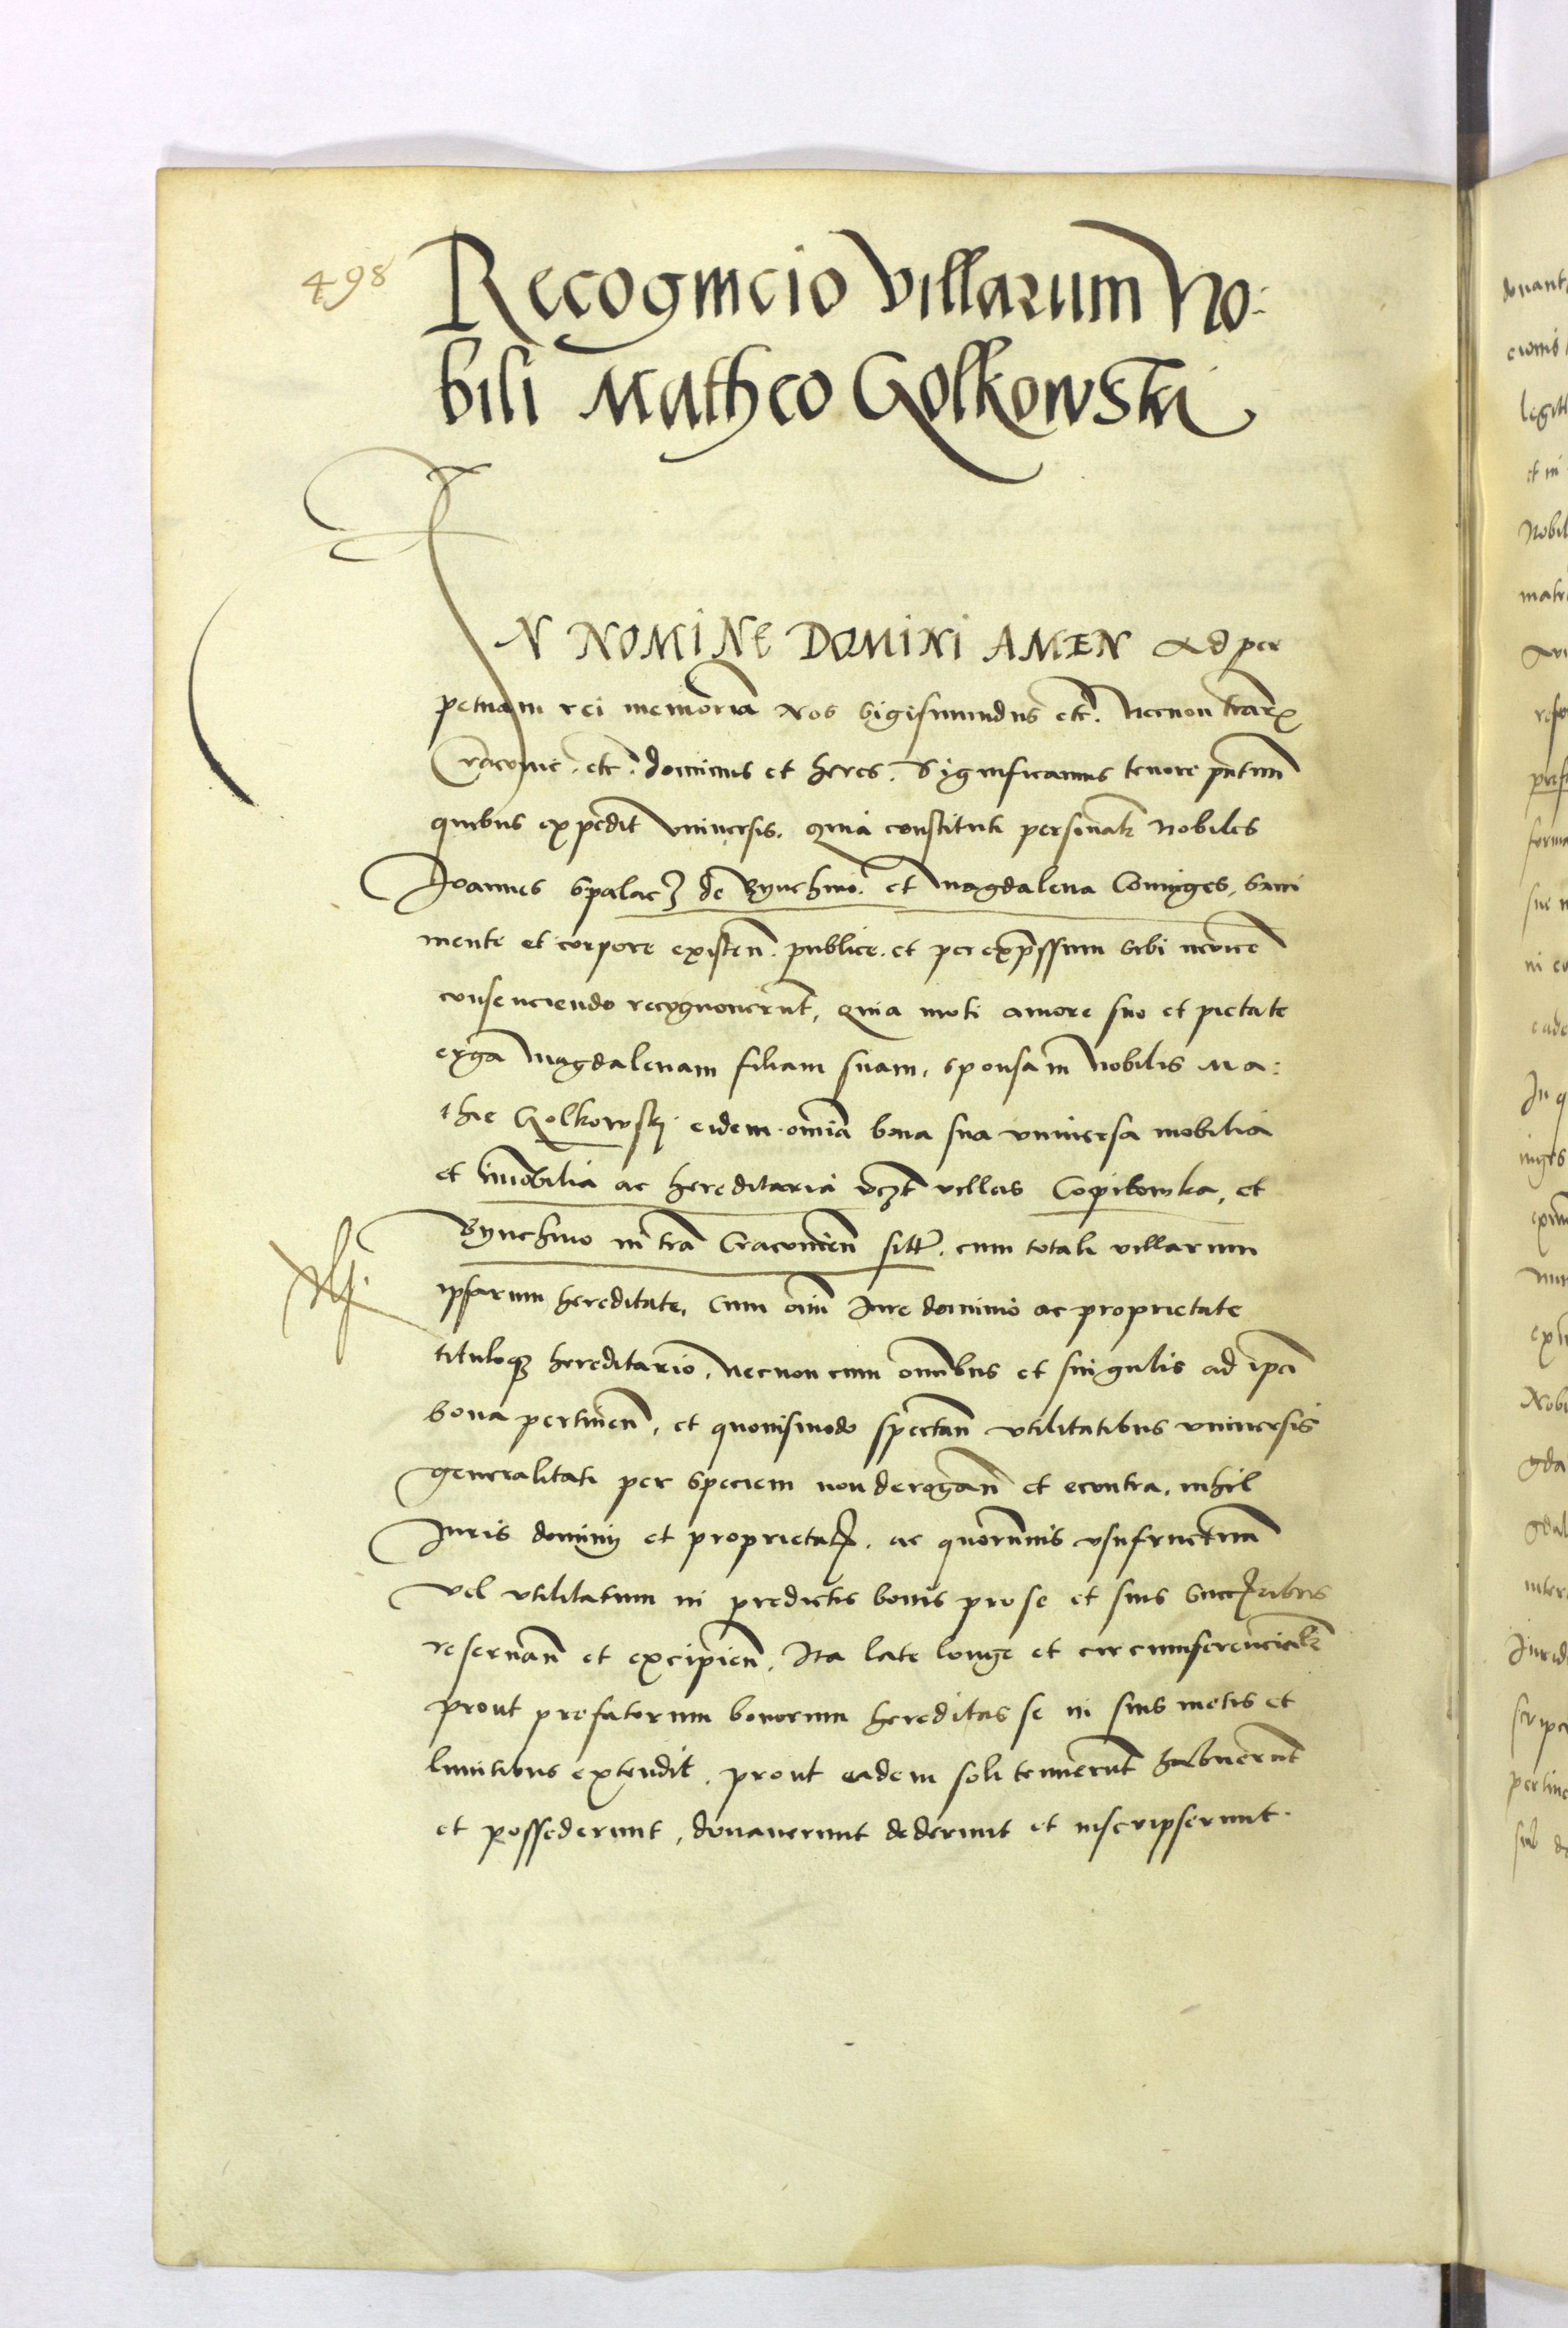 498
Recognicio Villarum No:
bili Matheo Golkowski
IN NOMINE DOMINI AMEN Ad per
petuam rei memoriā Nos Sigismundus etc. Necnon terrar
Cracovie. etc. dominus et heres. Significamus tenore pñtium
quibus expedit Universis. Quia constituti personalr Nobiles
Joannes Spalacz de Rynchno. et Magdalena Coniuges, Sani
mente et corpore existeñ. publice. et per expssum sibi invicē
consenciendo recognoverut, Quia moti amore suo et pietate
erga Magdalenam filiam suam, sponsam Nobilis Ma:
thie Golkowskj eidem omīa bona sua universa mobilia
et īmobilia ac hereditaria vczt villas Copitowka, et
Rynchno in tra Cracovieñ sitt. cum totali villarum
ipsarum hereditate, Cum oīm Jure dominio ac proprietate
tituloqz hereditario, Necnon cum omībus et singulis ad ipa
bona pertineñ, et quovismodo spectañ utilitatibus universis
generalitati per speciem non derogañ et econtra, nihil
Juris dominij et proprietat. ac quorumvis usufructuum
vel utilitatum in predictis bonis pro se et suis succ̄ribus
reservañ et excipieñ. Ita late longe et circumferencialr
prout prefatorum bonorum hereditas se in suis metis et
limitibus extendit. prout eadem soli tenuerut habuerut
et possederunt, donaverunt dederunt et inscripserunt.
donant
cionis
legitt
et in
Nobil
matr
refor
prefa
forma
sue
ni
eade
In q
inges
Nobi
gda
gdal
inter
Jurid
scrip
pertine
sub